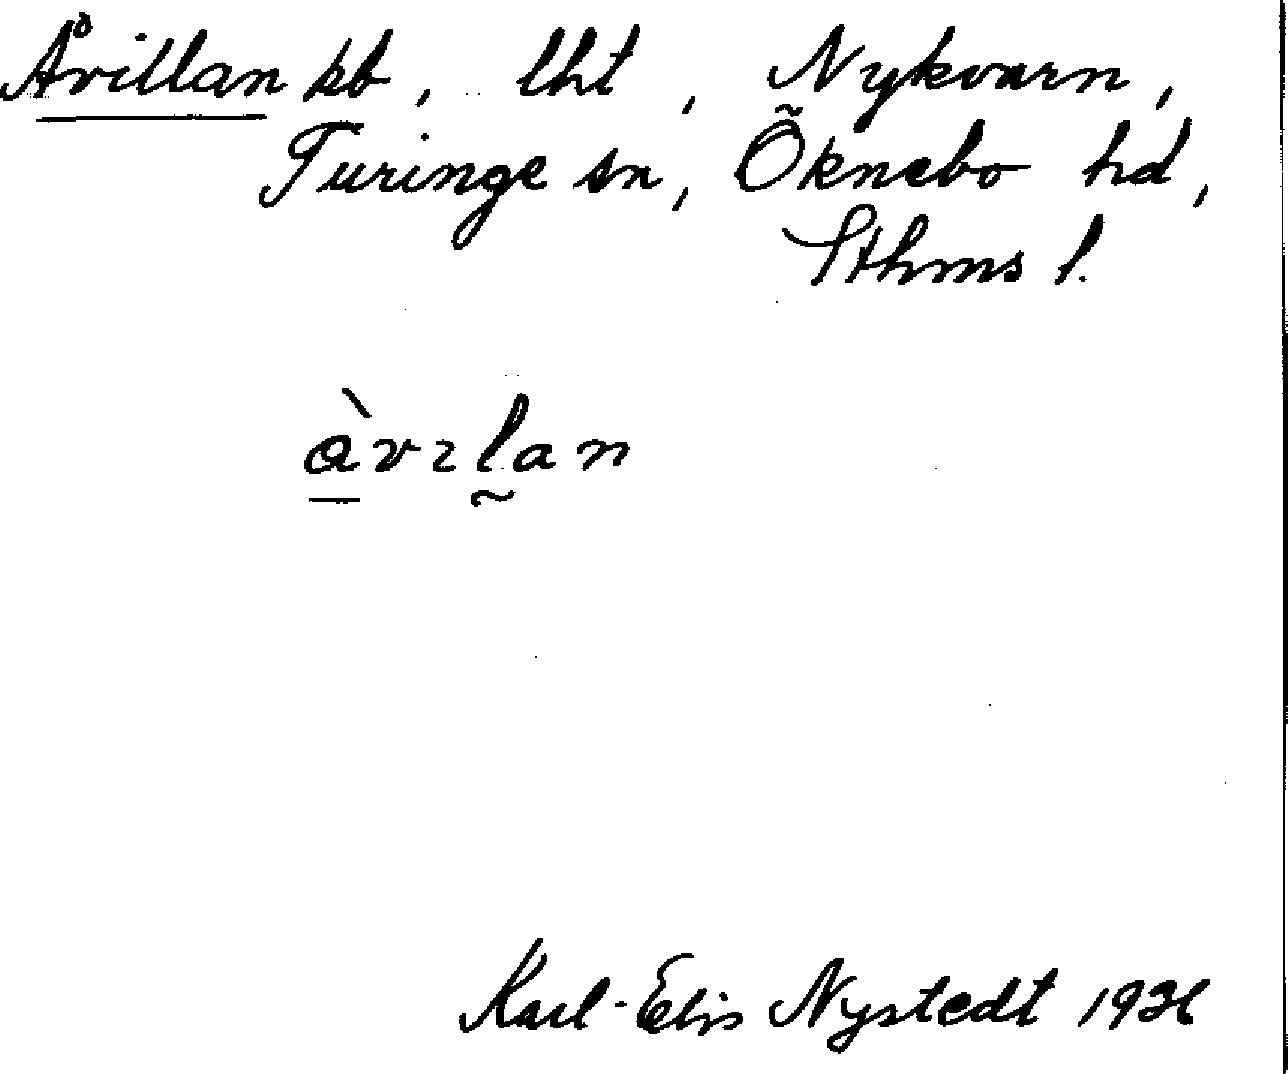 Åvillan kb, lht, Nykvarn,
Turinge sn, Öknebo hd,
Sthms l.
àvılan
Karl-Elis Nystedt